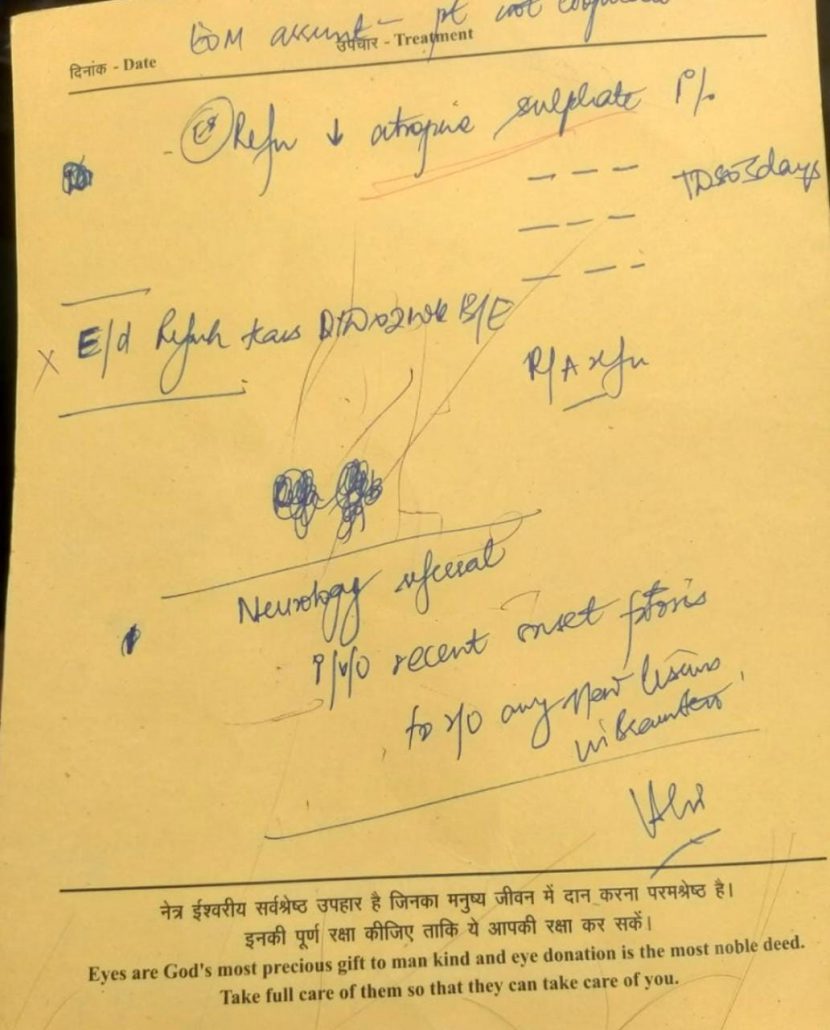 EOM assesment - pt not
दिनांक - Date उपचार - Treatment
Refn ↓ atropine sulphate 1%
TDS x 3 days
E/d Refresh tears x 2 wk B/E
R/A refn
Neurology referral
i/v/o recent onset ptosis
to r/o any new lesions
in
नेत्र ईश्वरीय सर्वश्रेष्ठ उपहार है जिनका मनुष्य जीवन में दान करना परमश्रेष्ठ है।
इनकी पूर्ण रक्षा कीजिए ताकि ये आपकी रक्षा कर सकें।
Eyes are God's most precious gift to man kind and eye donation is the most noble deed.
Take full care of them so that they can take care of you.